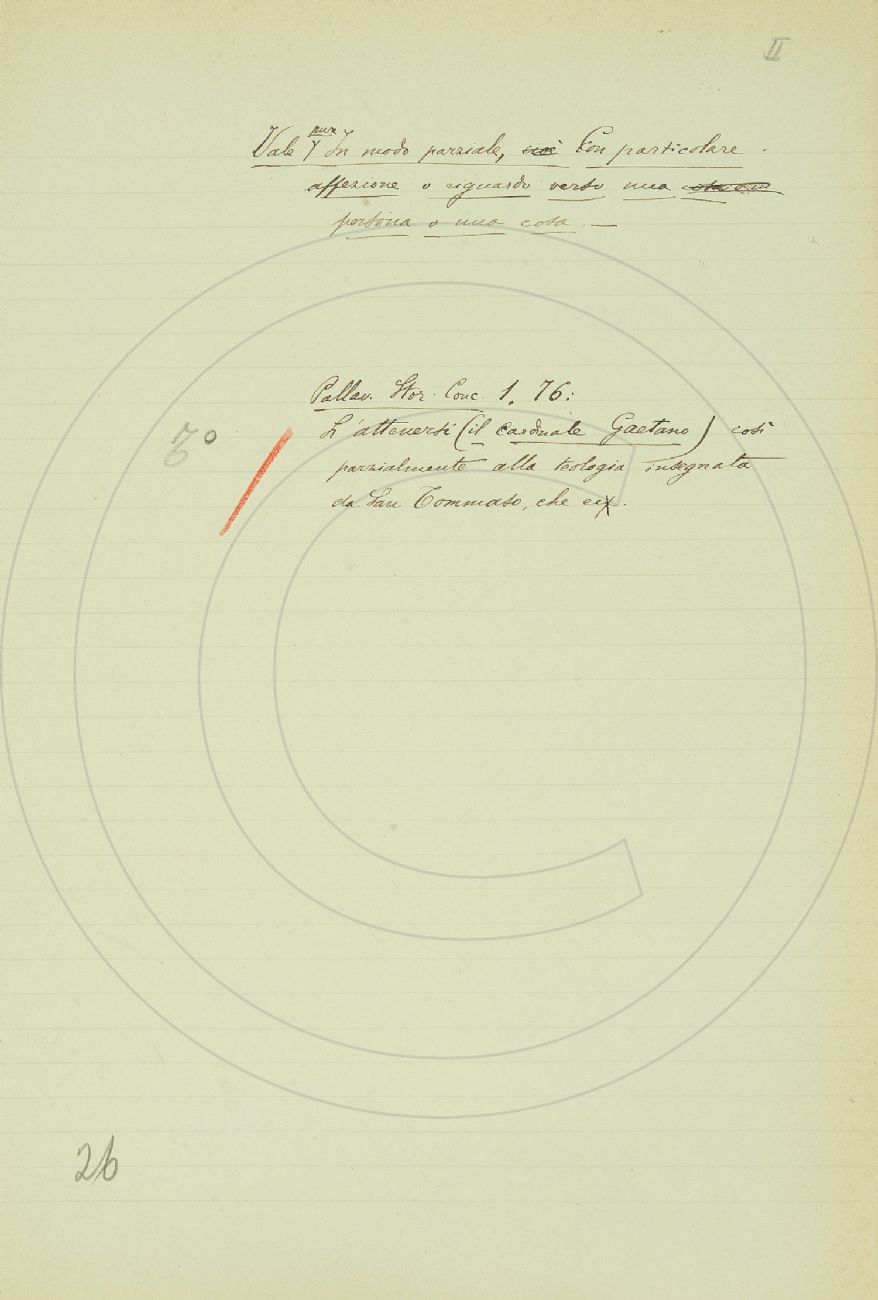 II
Vale pure In modo parziale, cioè Con particolare
affezione o riguardo verso una
persona o una cosa. —
Pallav. Stor. Conc. 1. 76:
L'attenersi (il cardinale Gaetano) così
parzialmente alla teologia insegnata
da San Tommaso, che
26